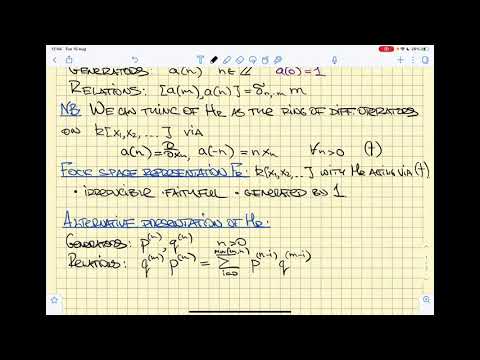 17:06 Tue 10 Aug
28%
GENERATORS: a(n) n∈ℤ a(0)=1
RELATIONS: [a(m), a(n)] = δ_{n,-m} m
NB: WE CAN THINK OF H_R AS THE RING OF DIFF. OPERATORS
ON k[x₁,x₂,...] VIA
a(n) = ∂/∂x_n, a(-n) = n x_n ∀n>0 (†)
FOCK SPACE REPRESENTATION F_R: k[x₁,x₂,..] WITH H_R ACTING VIA (†)
• IRREDUCIBLE • FAITHFUL • GENERATED BY 1
ALTERNATIVE PRESENTATION OF H_R:
GENERATORS: p^{(n)}, q^{(n)} n>0
RELATIONS: q^{(m)} p^{(n)} = ∑_{i=0}^{min(m,n)} p^{(n-i)} q^{(m-i)}